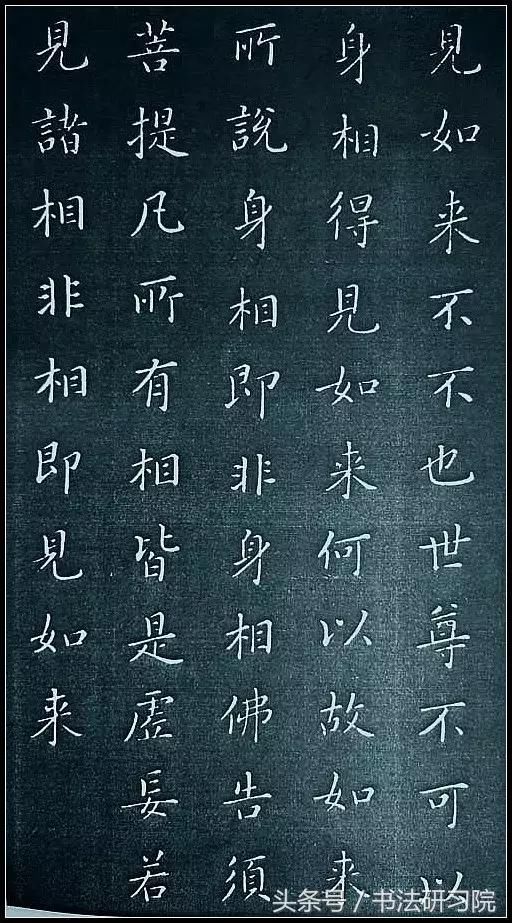 見如来不不也世尊不可以
身相得見如来何以故如来
所說身相即非身相佛告須
菩提凡所有相皆是虛妄若
見諸相非相即見如来
头条号/书法研习院